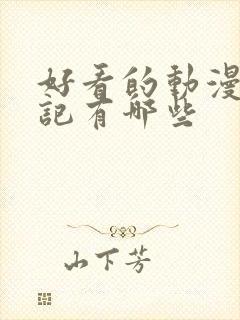 好看的動漫
記有哪些
山下芳